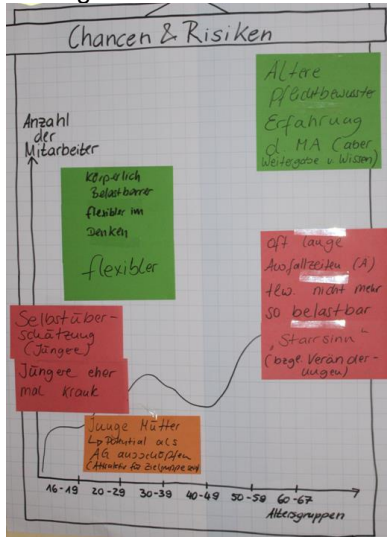 Chancen & Risiken
Anzahl
der
Mitarbeiter
Ältere
Pflichtbewusster
Erfahrung
d. MA (aber
Weitergabe v. Wissen)
Körperlich
Belastbarer
flexibler im
Denken
flexibler
oft lange
Ausfallzeiten (A)
tlw. nicht mehr
so belastbar
"Starrsinn"
(bzgl. Veränder-
ungen)
Selbstüber-
schätzung
(Jüngere)
Jüngere eher
mal krank
Junge Mütter
↳ Potential als
AG ausschöpfen
(Attraktiv für Zielgruppe
16-19 20-29 30-39 40-49 50-59 60-67
Altersgruppen